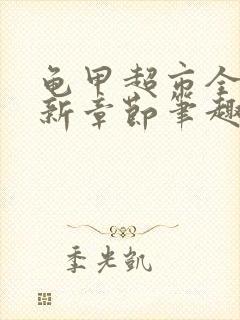 龟甲超市全
新章节笔趣
季光凯